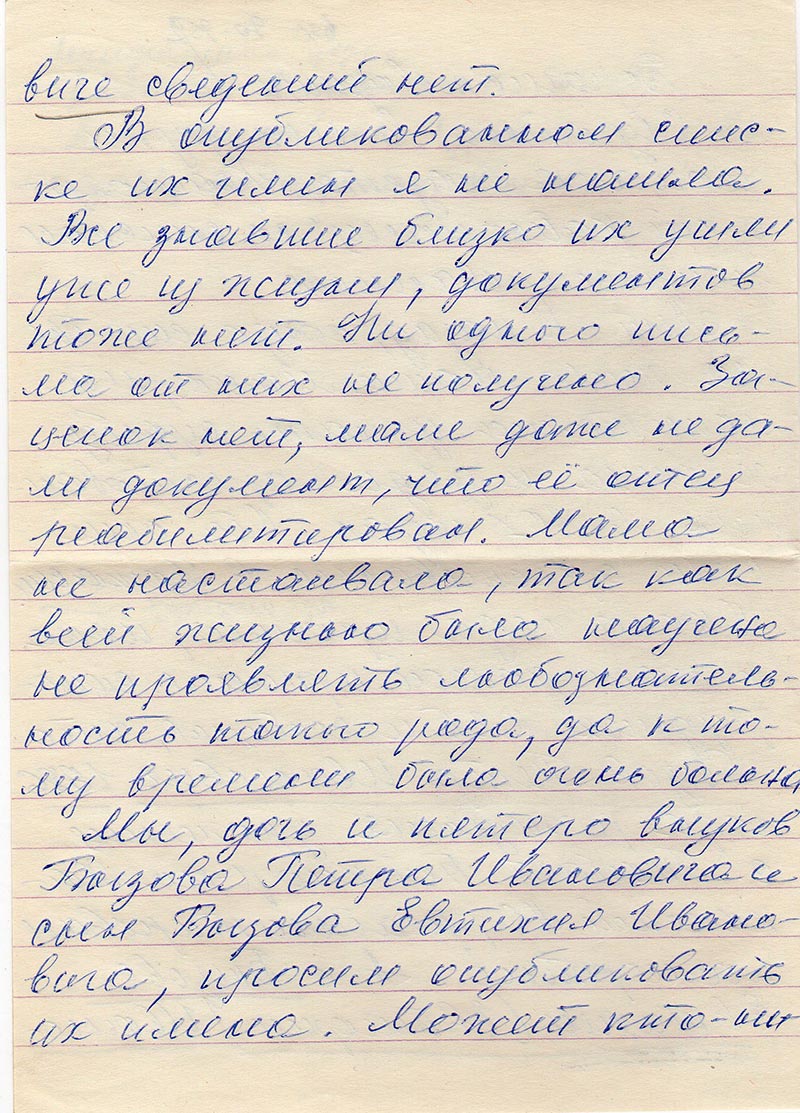 виче сведений нет.
В опубликованном спис-
ке их имен я не нашла.
Все знавшие близко их ушли
уже из жизни, документов
тоже нет. Ни одного пись-
ма от них не получено. За-
цепок нет, маме даже не да-
ли документ, что её отец
реабилитирован. Мама
не настаивала, так как
всей жизнью была научена
не проявлять любознатель-
ность такого рода, да к то-
му времени была очень больна
Мы, дочь и пятеро внуков
Бызова Петра Ивановича и
сын Бызова Евтихия Ивано-
вича, просим опубликовать
их имена. Может кто-ни